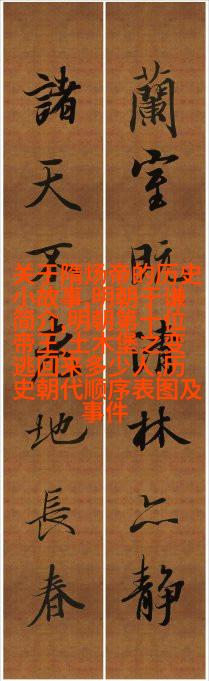 蘭室清林亦静
諸天不老地長春
关于隋炀帝的历史
小故事,明朝于谦
简介,明朝第十位
帝王,土木堡之变
逃回来多少人,历
史朝代顺序表图及
事件